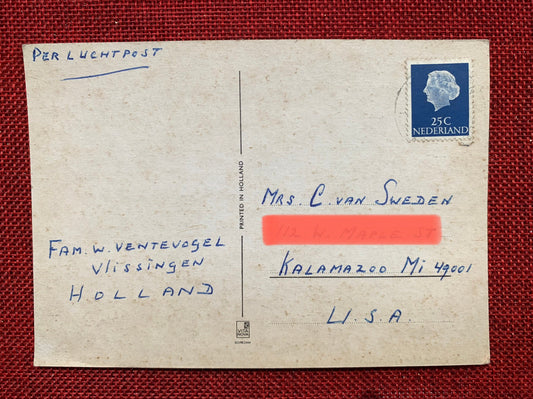 PER LUCHTPOST
25C
NEDERLAND
PRINTED IN HOLLAND
MRS. C. VAN SWEDEN
112 W. MAPLE ST
KALAMAZOO MI 49001
U.S.A.
FAM. W. VENTEVOGEL
VLISSINGEN
HOLLAND
VITA
NOVA